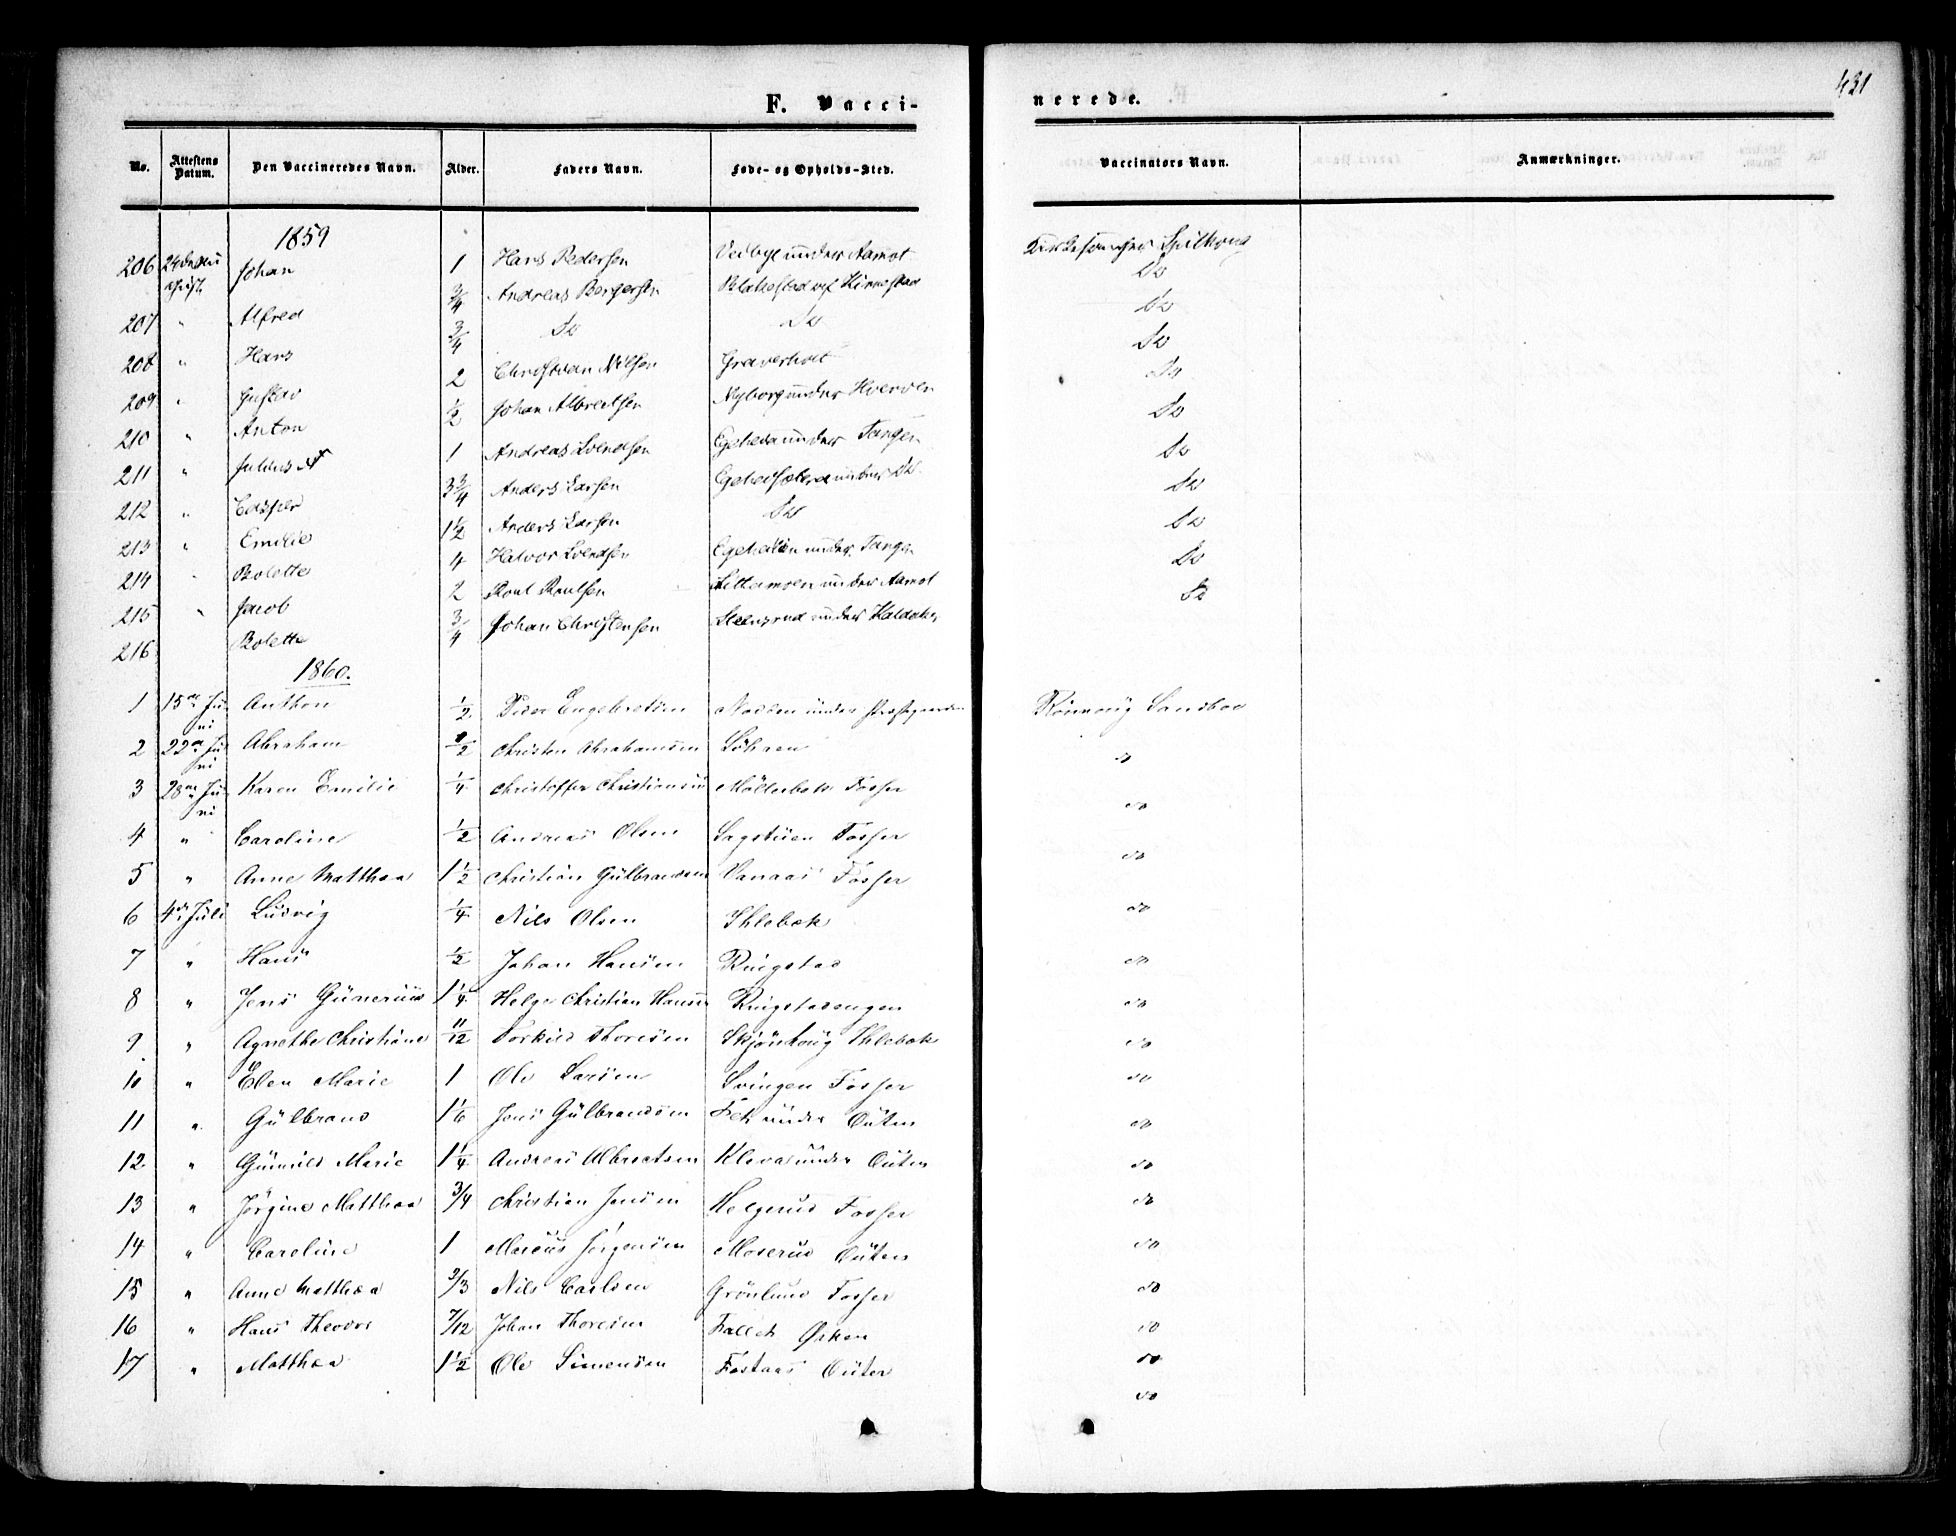 431
F. Vacci-
nerede.
No. Attestens Datum. Den Vaccineredes Navn. Alder. Faders Navn. Føde- og Opholds-Sted. Vaccinators Navn. Anmærkninger.
1859
206 Johan 1 Hans Pedersen under Aamot
207 " Alfred 3/4 Andreas Bergersen Do
208 " Hans 3/4 Do Do Do
209 " Gustav 2 Christian Nilsen Graverholt Do
210 " Anton 1/2 Johan Albrectsen Nyborg under Hverven Do
211 " Julius 1 Andreas Svendsen under Tangen Do
212 " Casper 3 3/4 Anders Larsen under Do Do
213 " Emilie 1 1/2 Anders Larsen Do Do
214 " Bolette 4 Halvor Svendsen under Tangen Do
215 " Jacob 2 Poul Poulsen under Aamot Do
216 Bolette 3/4 Johan Christensen Steensrud under Do
1860.
1 15de Juni Anthon 1/2 Peder Engebretsen under Præstgaarden
2 22de Juni Abraham 1/2 Christen Abrahamsen Löhren do
3 28de Juni Karen Emilie 1/4 Christoffer Christiansen Möllerbek Fosser do
4 " Caroline 1/2 Andreas Olsen Sagstuen Fosser do
5 " Anne Matthea 1 1/2 Christian Gülbrandsen Vanaas Fosser do
6 4de Juli Ludvig 1/4 Nils Olsen Ihlebæk do
7 " Hans 1/2 Johan Hansen Ringstad do
8 " Jens Günerius 1 1/4 Helge Christian Hansen Ringstadengen do
9 " Agnethe Christiane 11/12 Torkild Thoresen Skjönhaug Ihlebæk do
10 " Elen Marie 1 Ole Larsen Svingen Fosser do
11 " Gülbrand 1 1/6 Jens Gülbrandsen under Outen do
12 " Günild Marie 1 1/4 Andreas Albrectsen Kleva under Outen do
13 " Jörgine Matthea 3/4 Christian Jensen Helgerud Fosser do
14 " Caroline 1 Marcus Jörgensen Moserud Outen do
15 " Anne Matthea 2/3 Nils Carlsen Grönlund Fosser do
16 " Hans Theodor 7/12 Johan Thoresen Fallet Ørken do
17 " Matthea 1 1/2 Ole Simensen Fostaas Outen do
do